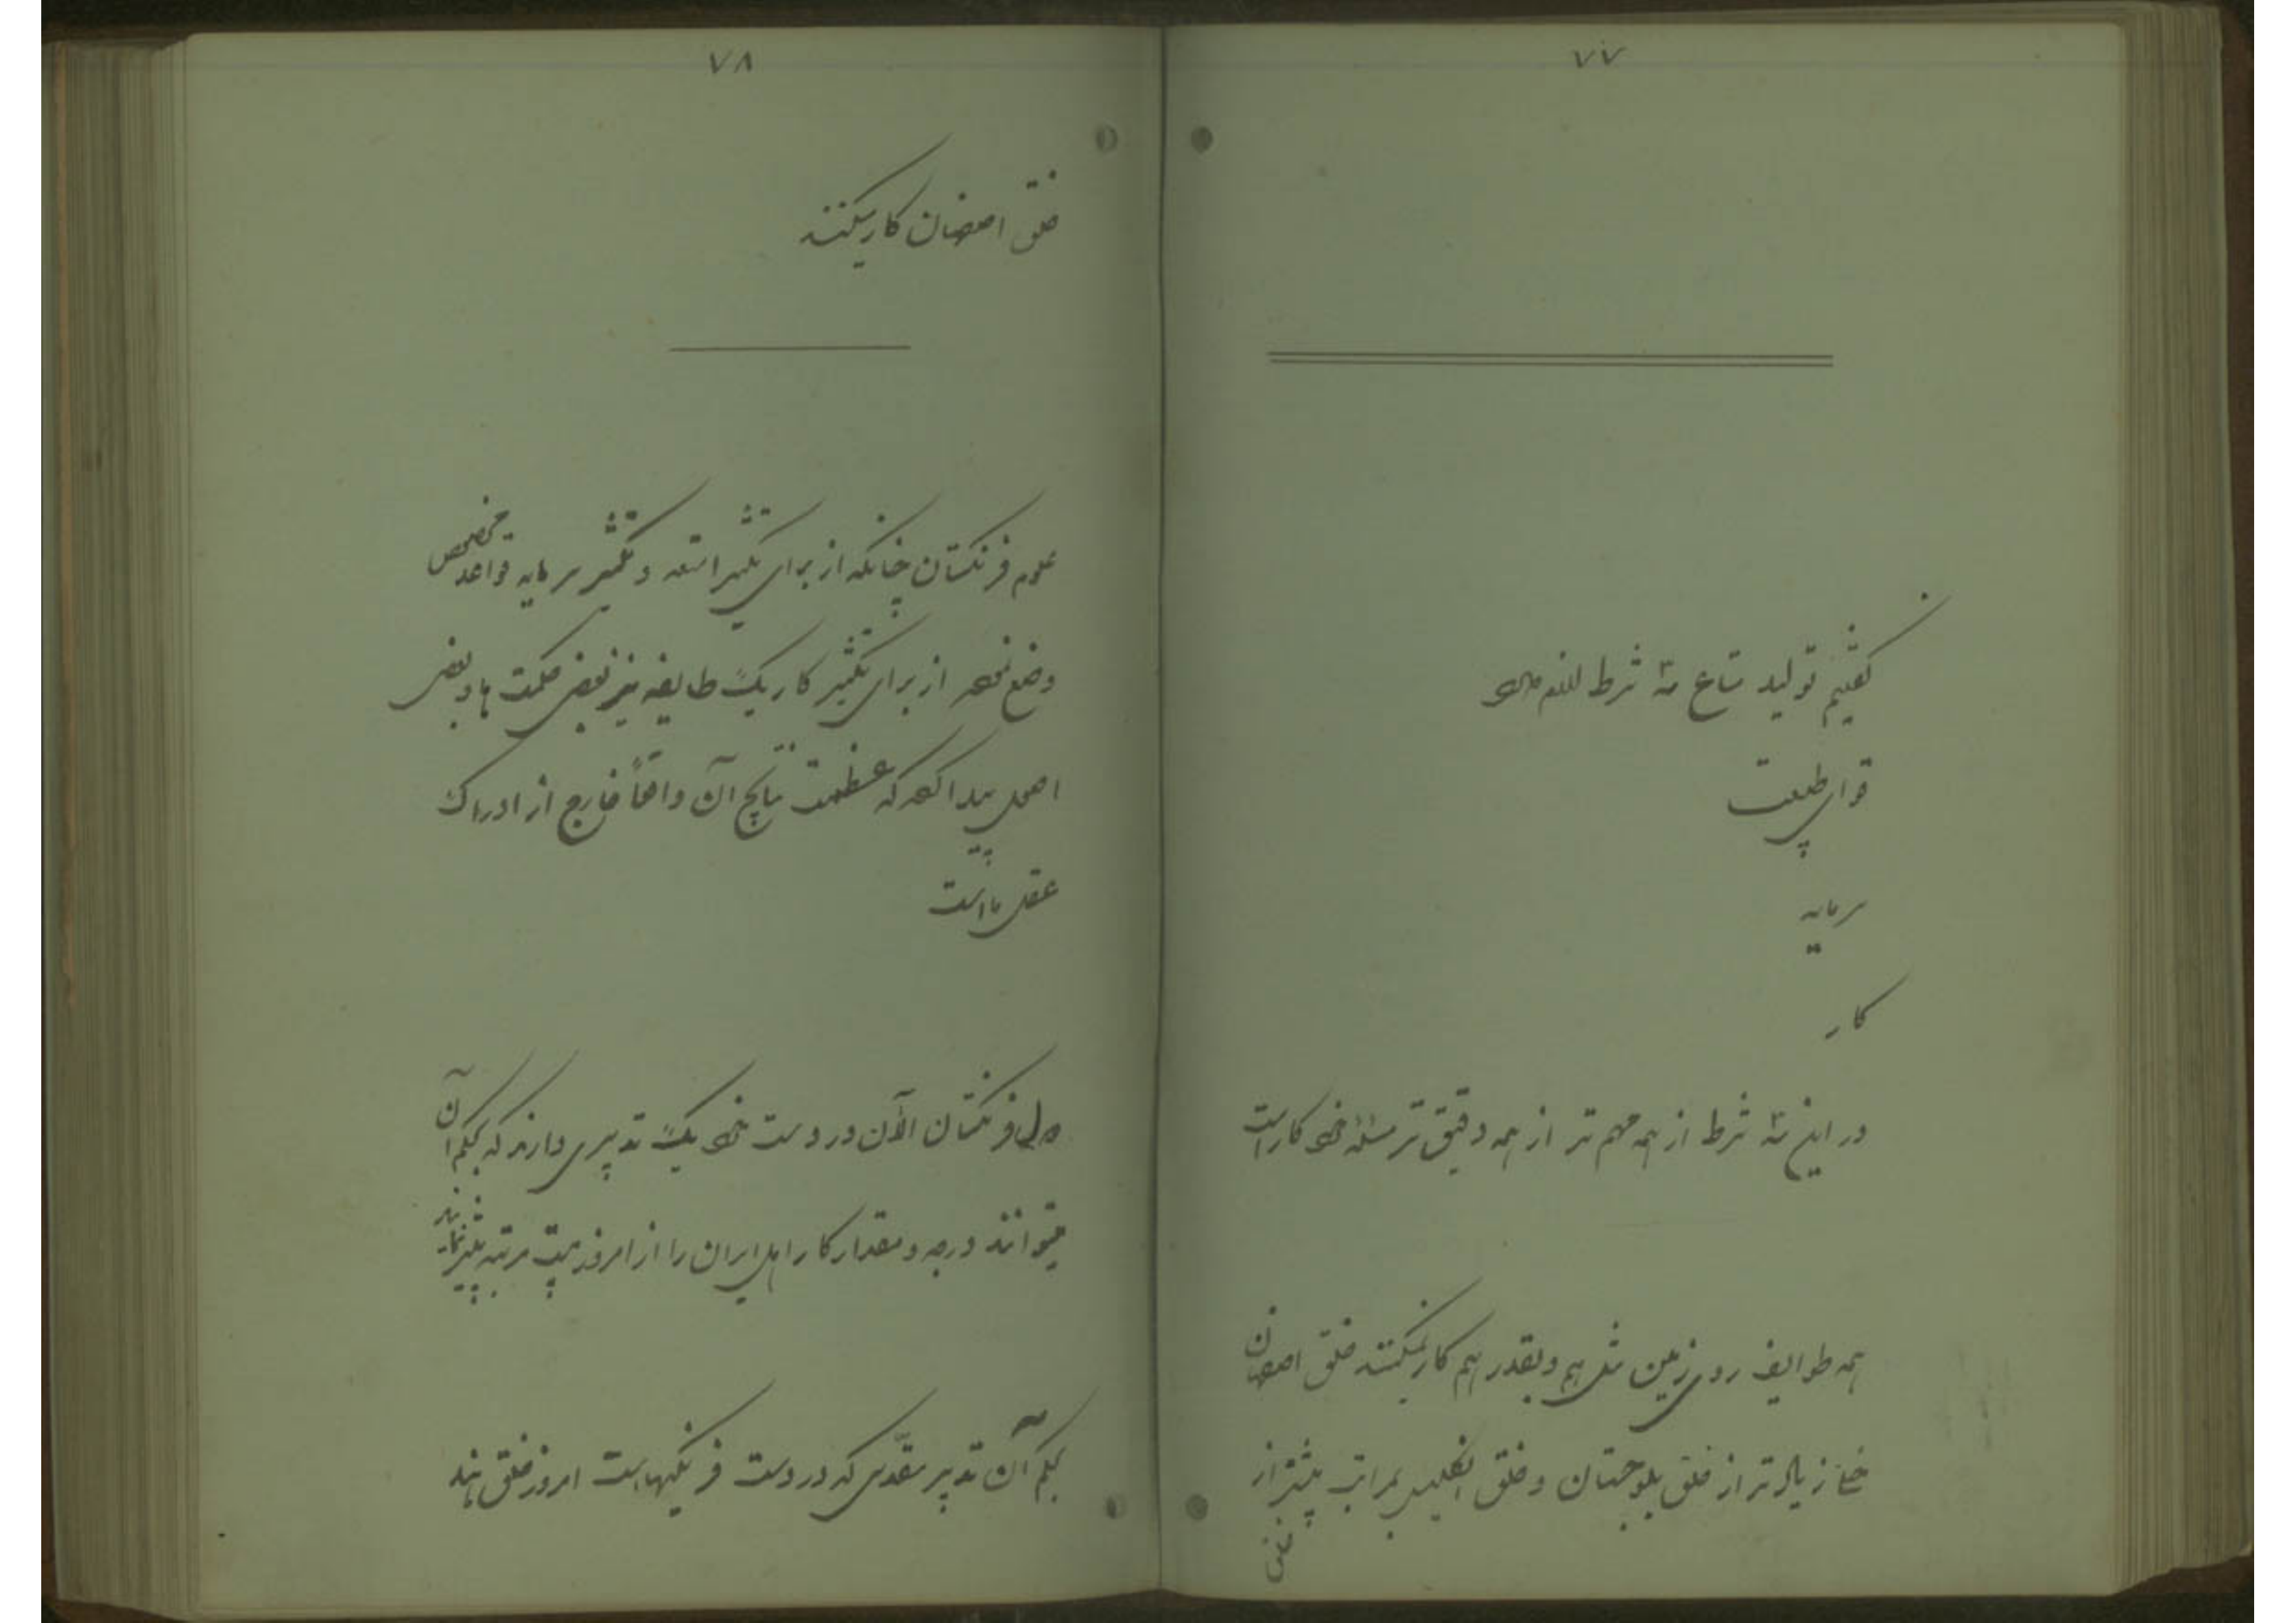 ۷۷
گفتیم تولید متاع سه شرط لازم دارد
قوای طبیعت
سرمایه
کار
در این سه شرط از همه مهم تر از همه دقیق تر مسئله خود کار است
همه طوایف روی زمین مثل هم و بقدر هم کار نمیکنند خلق اصفهان
خیلی زیادتر از خلق بلوچستان و خلق انگلیس بمراتب بیشتر از
خلق
۷۸
خلق اصفهان کار میکنند
علوم فرنگستان چنانکه از برای تکثیر امتعه و تکثیر سرمایه قواعد مخصوص
وضع نموده از برای تکثیر کار یک طایفه نیز بعضی حکمت ها و بعضی
اصول پیدا کرده که عظمت نتایج آن واقعاً خارج از ادراک
عقل ما است
دول فرنگستان الآن در دست خود یک تدبیری دارند که بحکم آن
میتوانند درجه و مقدار کار اهل ایران را از امروز بیست مرتبه بیشتر نمایند
بحکم آن تدبیر مقدّس که در دست فرنگیهاست امروز خلق